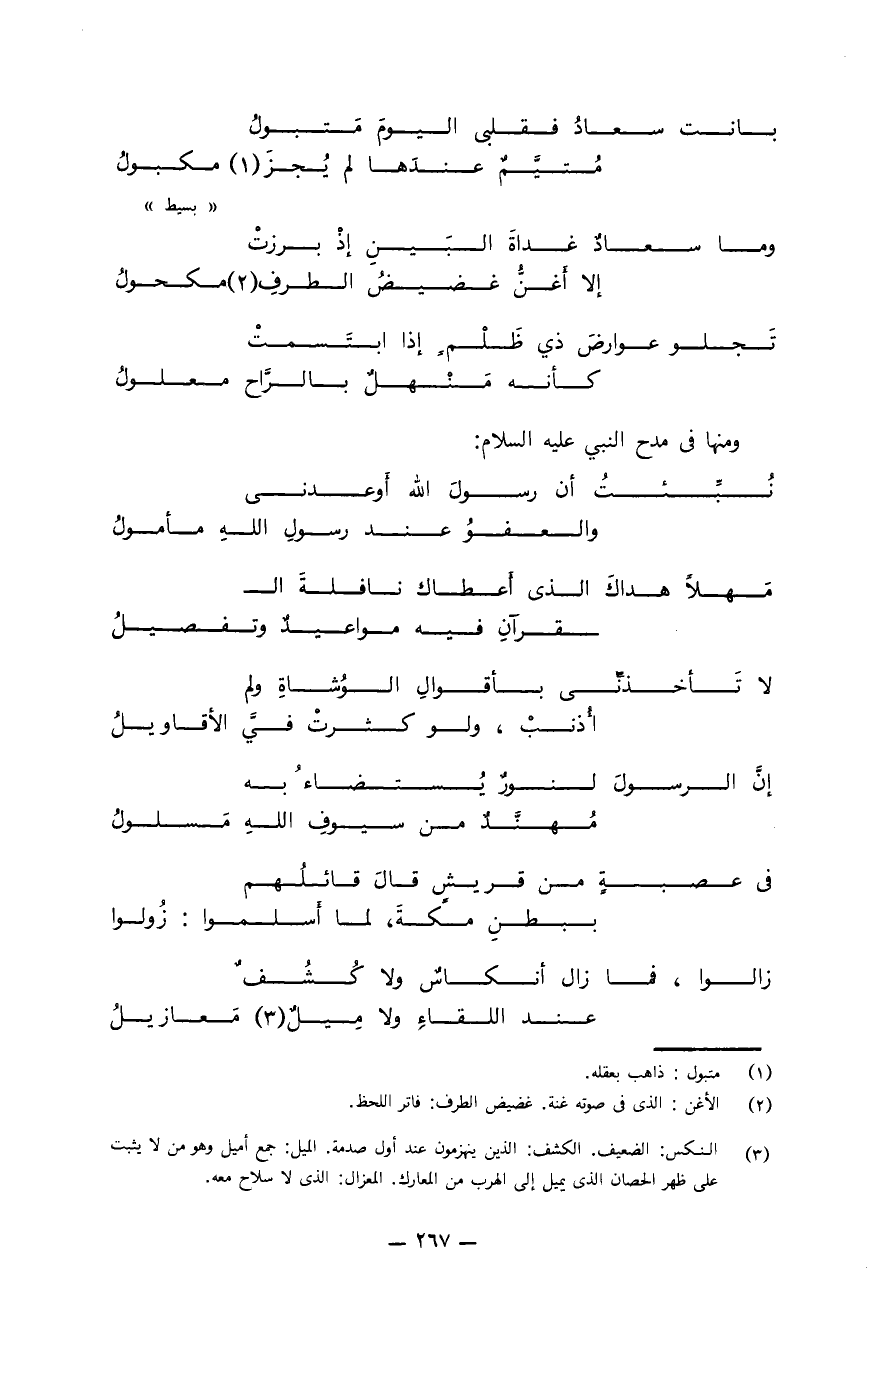 بانت سعادُ فقلبى اليومَ مَتبولُ
مُتيَّمٌ عندَها لم يُجزَ(١) مكبولُ
« بسيط »
وما سعادُ غداةَ البَينِ إذْ برزتْ
إلا أَغنُّ غضيضُ الطرفِ(٢)مكحولُ
تَجلو عوارضَ ذي ظَلْمٍ إذا ابتَسمتْ
كأنه مَنْهلٌ بالرَّاح معلولُ
ومنها فى مدح النبي عليه السلام:
نُبِّئتُ أن رسولَ الله أَوعدنى
والعفوُ عند رسولِ اللهِ مأمولُ
مَهلاً هداكَ الذى أَعطاك نافلةَ الـ
ـقرآنِ فيه مواعيدٌ وتفصيلُ
لا تَأخذنِّى بأقوالِ الوُشاةِ ولم
أُذنبْ ، ولو كثرتْ فيَّ الأقاويلُ
إنَّ الرسولَ لنورٌ يُستضاءُ به
مُهنَّدٌ من سيوفِ اللهِ مَسلولُ
فى عصبةٍ من قريشٍ قالَ قائلُهم
ببطنِ مكَّةَ، لما أَسلموا : زُولوا
زالوا ، فما زال أنكاسٌ ولا كُشُفٌ
عند اللقاءِ ولا مِيلٌ(٣) مَعازيلُ
(١) متبول : ذاهب بعقله.
(٢) الأغن : الذى فى صوته غنة. غضيض الطرف: فاتر اللحظ.
(٣) النكس: الضعيف. الكشف: الذين ينهزمون عند أول صدمة. الميل: جمع أميل وهو من لا يثبت
على ظهر الحصان الذى يميل إلى الهرب من المعارك. المعزال: الذى لا سلاح معه.
— ٢٦٧ —